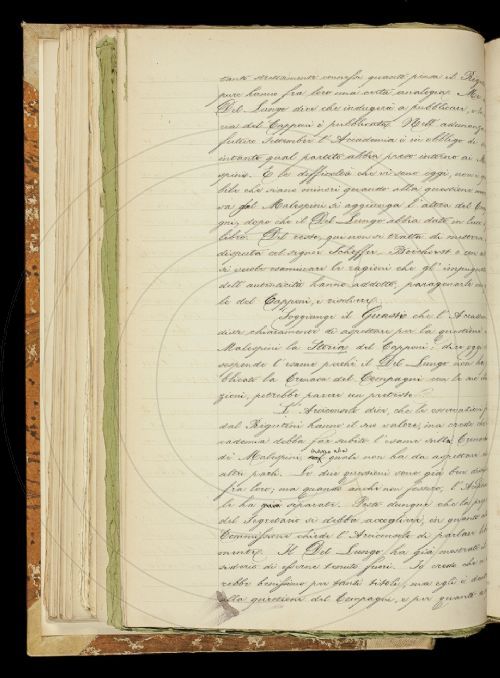 tanto strettamente connesse quanto pensa il Rigu
pure hanno fra loro una certa analogia. Ma
Del Lungo dice che indugerà a pubblicare, s
ria del Capponi è pubblicata. Nell' adunanza
futuro Settembre l'Accademia è in obbligo di
intanto qual partito abbia preso intorno ai M
spini. E le difficoltà che vi sono oggi, non
bile che siano minori quando alla questione
va del Malespini si aggiunga l'altra del Co
gni, dopo che il Del Lungo abbia dato in luce
libro. Del resto, qui non si tratta di
disputa col signor Scheffer-Boichorst
si vuole esaminare le ragioni che gl' impugna
dell' autenticità hanno addotte, paragonarle
le del Capponi, e risolvere.
Soggiunge il Guasti che l'Accad
disse chiaramente di aspettare per la questione
Malespini la Storia del Capponi: dire oggi
sospende l'esame perchè il Del Lungo non ha
blicato la Cronaca del Compagni con le
zioni, potrebbe parere un pretesto.
L'Arciconsolo dice, che le osservazioni
dal Rigutini hanno il suo valore; ma crede che
cademia debba far subito l'esame sulla Cronaca
di Malespini, quale non ha da aspettare
altri pochi. Le due questioni sono già ben
fra loro; ma quando anche non fossero, l'Accad
le ha già separate. Posto dunque che la prop
del Segretario si debba accogliere, in quanto a
Commissione chiede l'Arciconsolo di parlare
mente. Il Del Lungo ha già mostrato
siderio di esserne tenuto fuori. Io credo che
rebbe benissimo per tanti titoli; ma egli è
alla questione del Compagni, e per quanto